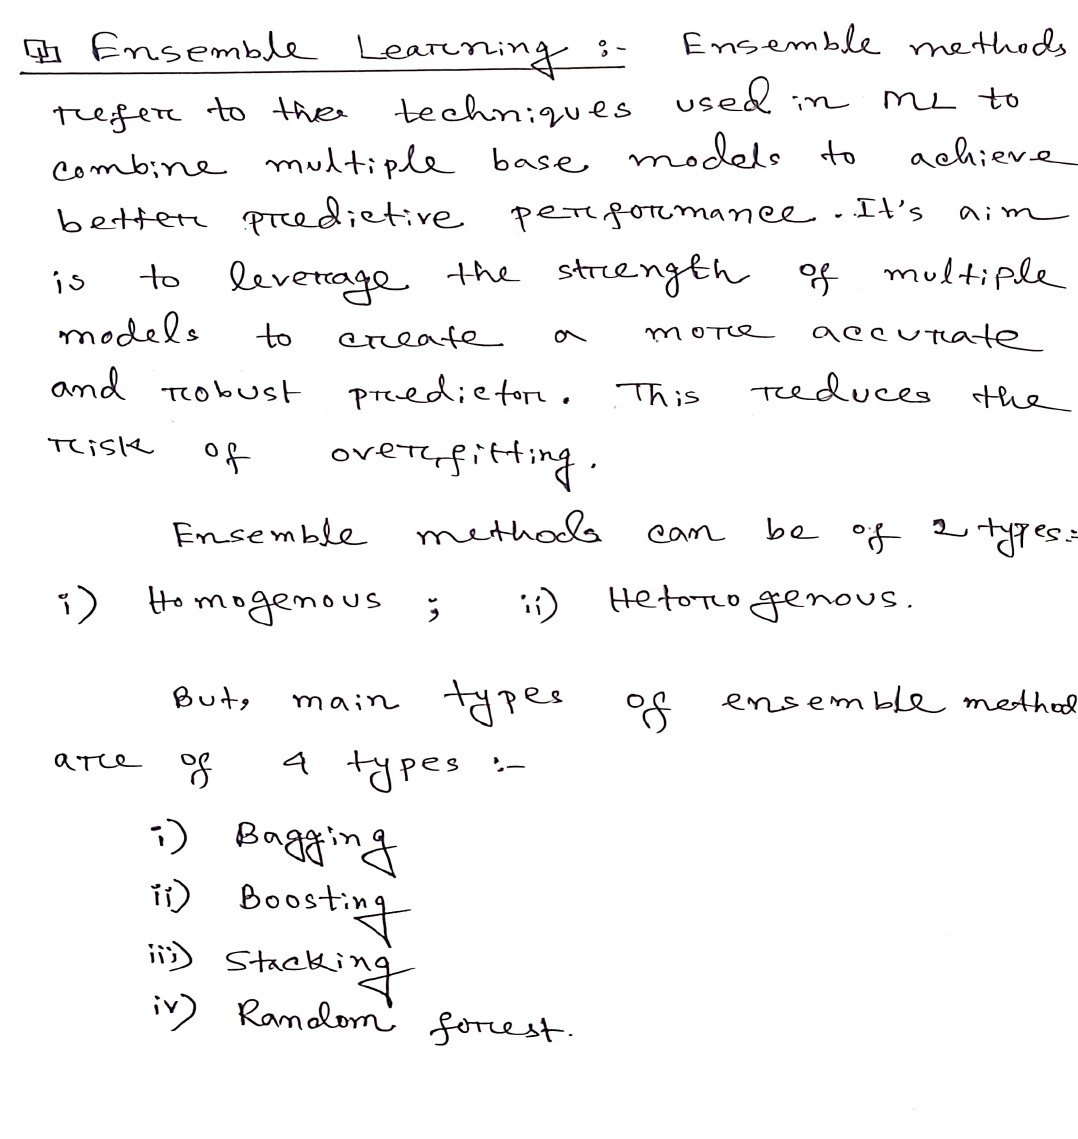 Ensemble Learning :- Ensemble methods
refer to the techniques used in ML to
combine multiple base models to achieve
better predictive performance. It's aim
is to leverage the strength of multiple
models to create a more accurate
and robust predictor. This reduces the
risk of overfitting.
Ensemble methods can be of 2 types:-
i) Homogenous ; ii) Hetorogenous.
But, main types of ensemble method
are of 4 types :-
i) Bagging
ii) Boosting
iii) Stacking
iv) Random forest.